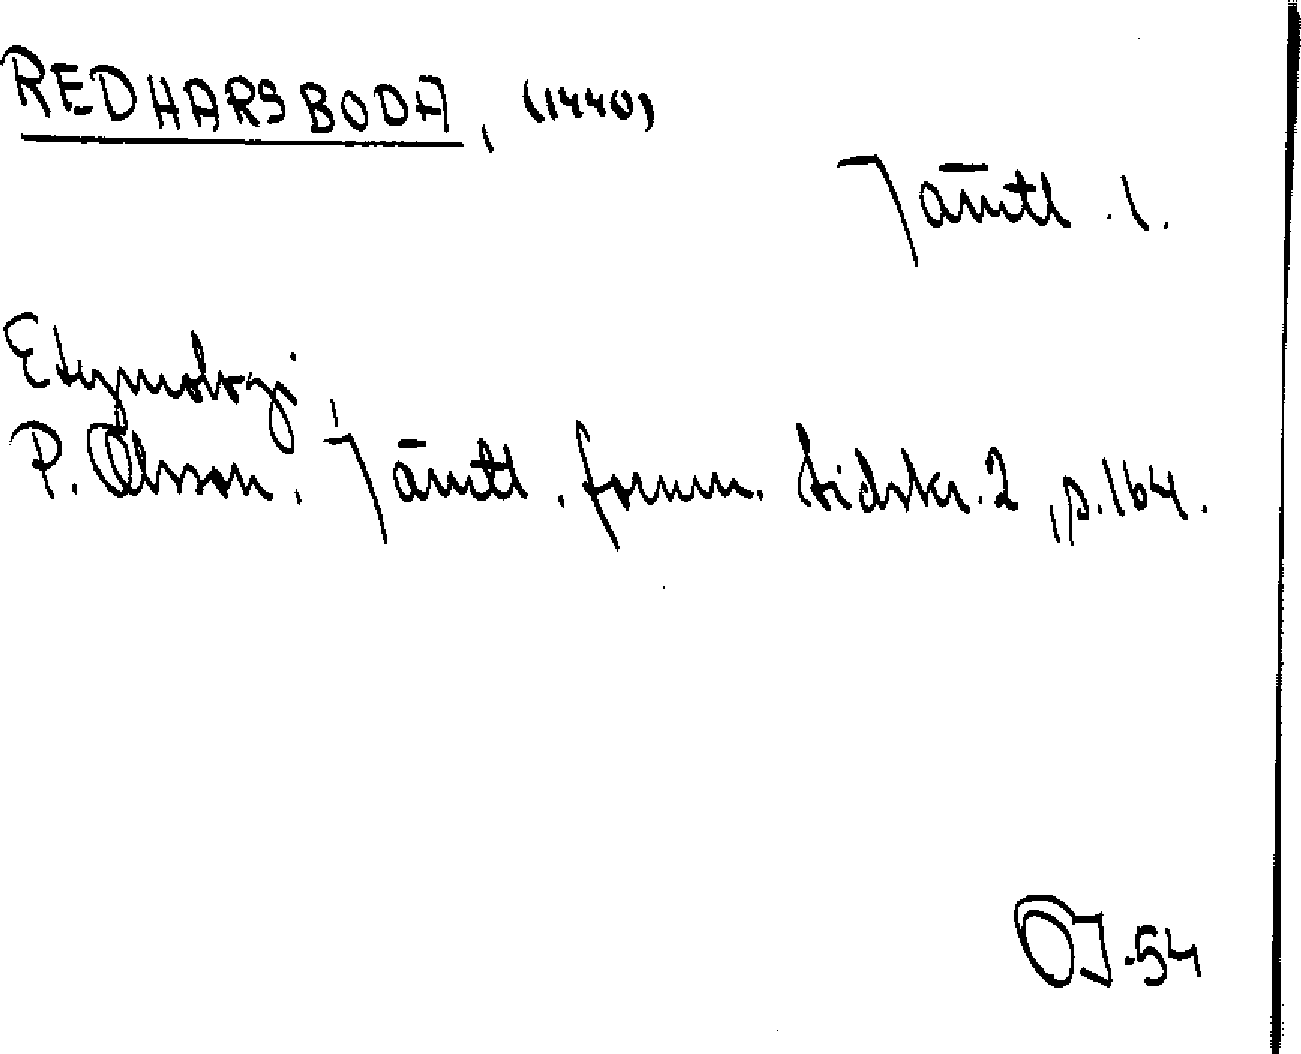 REDHARSBODA, (1440)
Jämtl. l.
Etymologi,
P. Olsson. Jämtl. fornm. tidskr. 2, p. 164.
OJ. 54